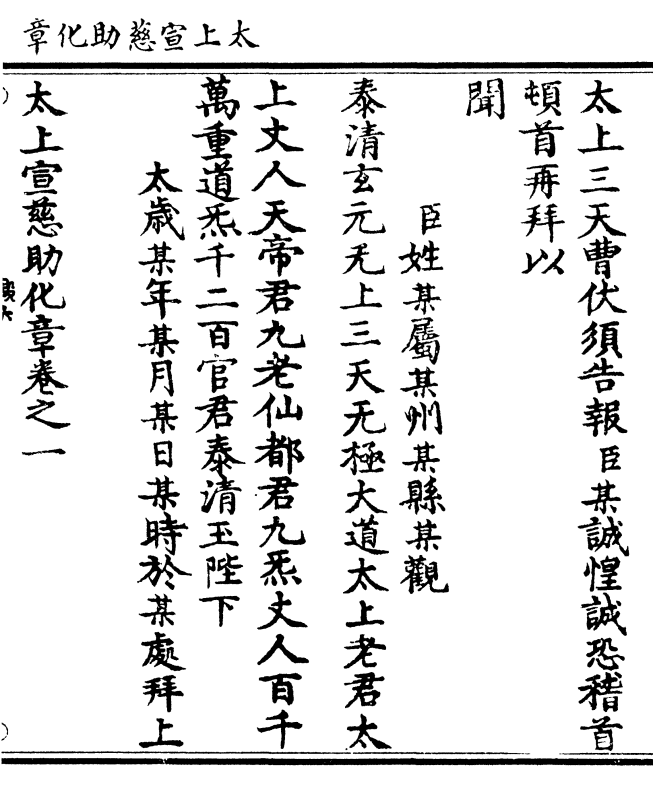 太上宣慈助化章
太上三天曹伏須告報臣某誠惶誠恐稽首
頓首再拜以
聞
臣姓某屬某州某縣某觀
泰清玄元无上三天无極大道太上老君太
上丈人天帝君九老仙都君九炁丈人百千
萬重道炁千二百官君泰清玉陛下
太歲某年某月某日某時於某處拜上
太上宣慈助化章卷之一